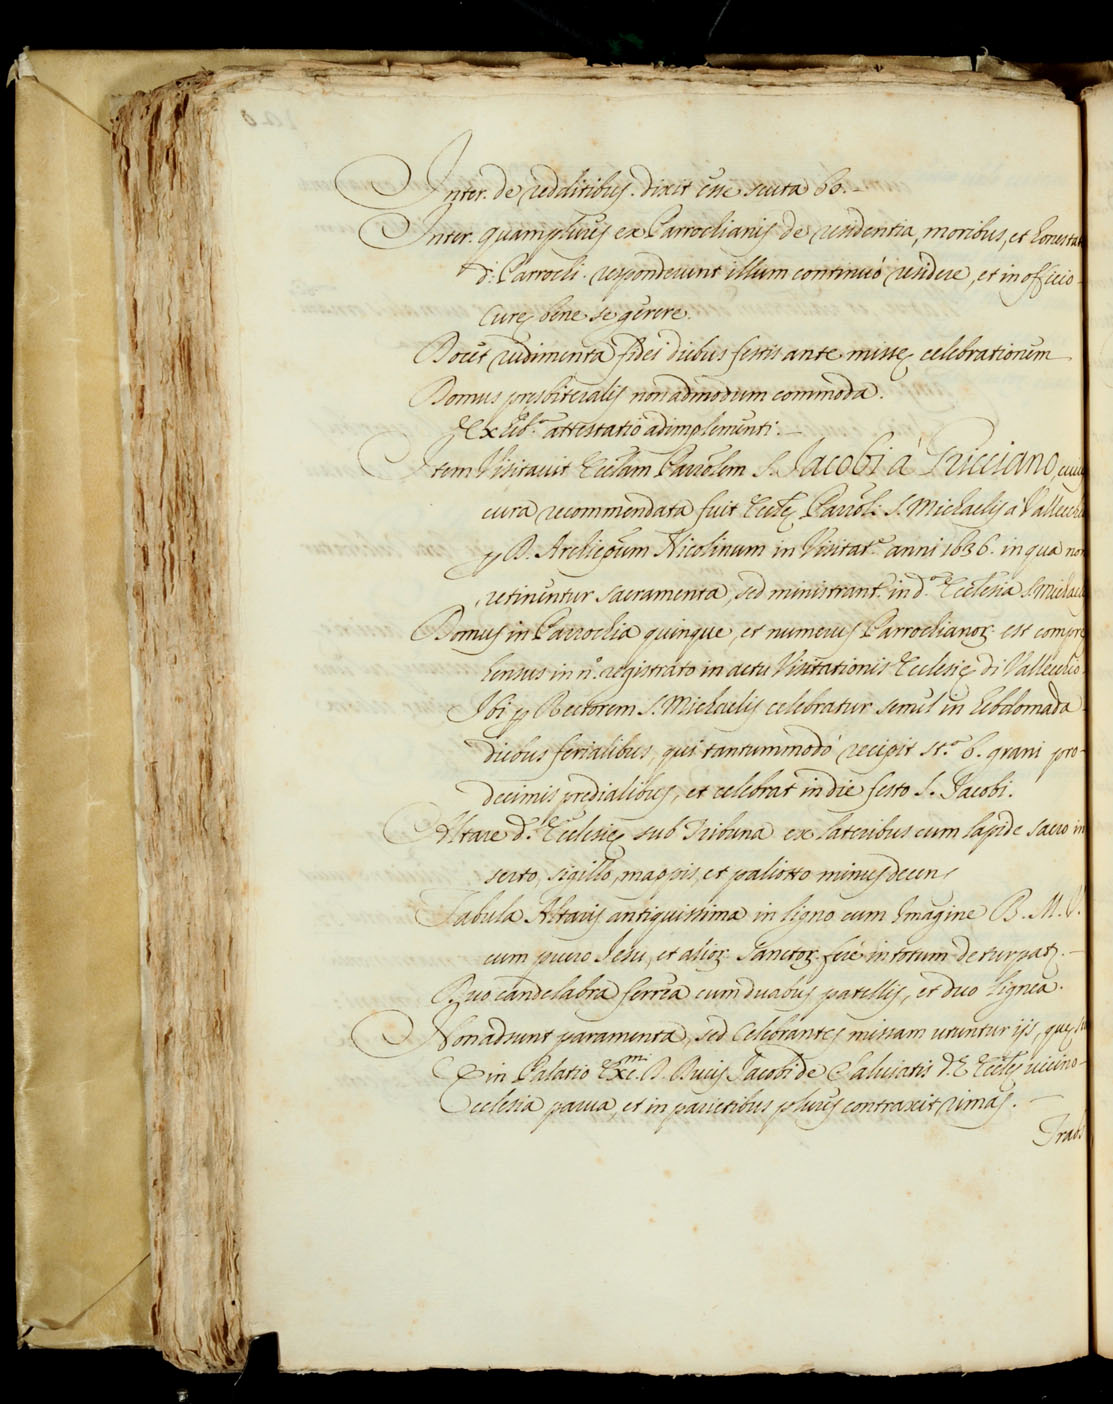 Inter. de redditibus. dixit esse scuta 60.-
Inter. quamplures ex Parrochianis de residentia, moribus, et honestat
d.i Parrochi. responderunt illum continuò residere, et in officio
Curę bene se gerere.
Docet rudimenta fidei diebus festis ante missę celebrationem
Domus presbiteralis non admodum commoda.
Exhib.a attestatio adimplementi.-
Item Visitavit Ecclam Parrolem S. Jacobi à Ricciano, cuius
cura recommendata fuit Eccłę Parrol. S. Michaelis à Vallecchi
p D. Archiepum Nicolinum in Visitat.e anni 1636. in qua non
retinentur sacramenta, sed ministrant.r in d.a Ecclesia S. Michael
Domus in Parrochia quinque, et numerus Parrochianoꝝ est compre
hensus in n.o registrato in actu Visitationis Ecclesię di Vallecchio.
Ibi p Rectorem S. Michaelis celebratur semel in hebdomada
diebus ferialibus, qui tantummodò recipit st.a 6. grani pro-
decimis predialibus, et celebrat in die festo S. Jacobi.
Altare d.ę Ecclesię sub Tribuna ex lateribus cum lapide sacro in
serto, sigillo, mappis, et paliotto minus decen.
Tabula Altaris antiquissima in ligno cum Imagine B. M. V.
cum puero Jesu, et alioꝝ Sanctoꝝ ferè in totum deturpat.-
Duo candelabra ferrea cum duabus patellis, et duo lignea.
Non adsunt paramenta, sed celebrantes missam utuntur ijs, quę su
in Palatio Exc.mi D. Ducis Jacobi de Salviatis d.ę Eccłę vicino-
Ecclesia parva, et in parietibus plures contraxit rimas.-
Trab